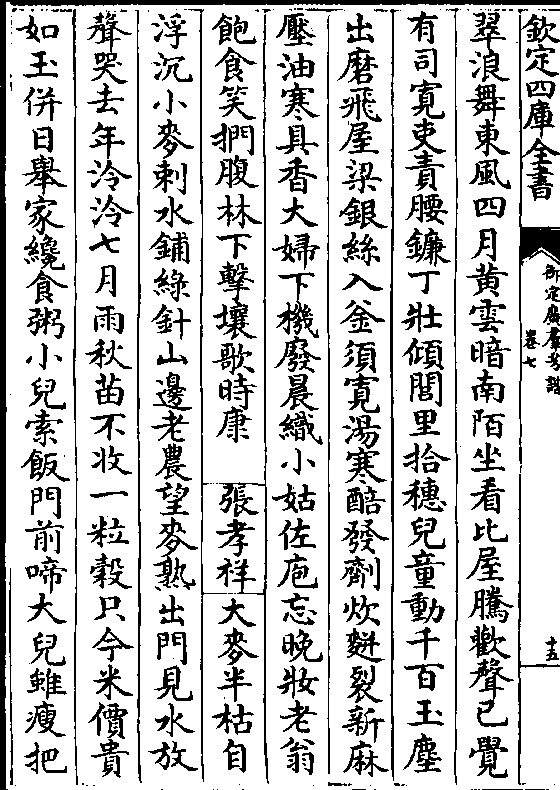 欽定四庫全書
御定廣羣芳譜
卷七
十五
翠浪舞東風四月黄雲暗南陌坐看比屋騰歡聲已覺
有司寛吏責腰鐮丁壯傾閭里拾穗兒童動千百玉塵
出磨飛屋梁銀絲入釜須寛湯寒醅發劑炊麰裂新麻
壓油寒具香大婦下機廢晨織小姑佐庖忘晚妝老翁
飽食笑捫腹林下擊壤歌時康 張孝祥 大麥半枯自
浮沉小麥刺水鋪綠針山邊老農望麥熟出門見水放
聲哭去年泠泠七月雨秋苗不收一粒榖只今米價貴
如玉併日舉家纔食粥小兒索飯門前啼大兒雖瘦把